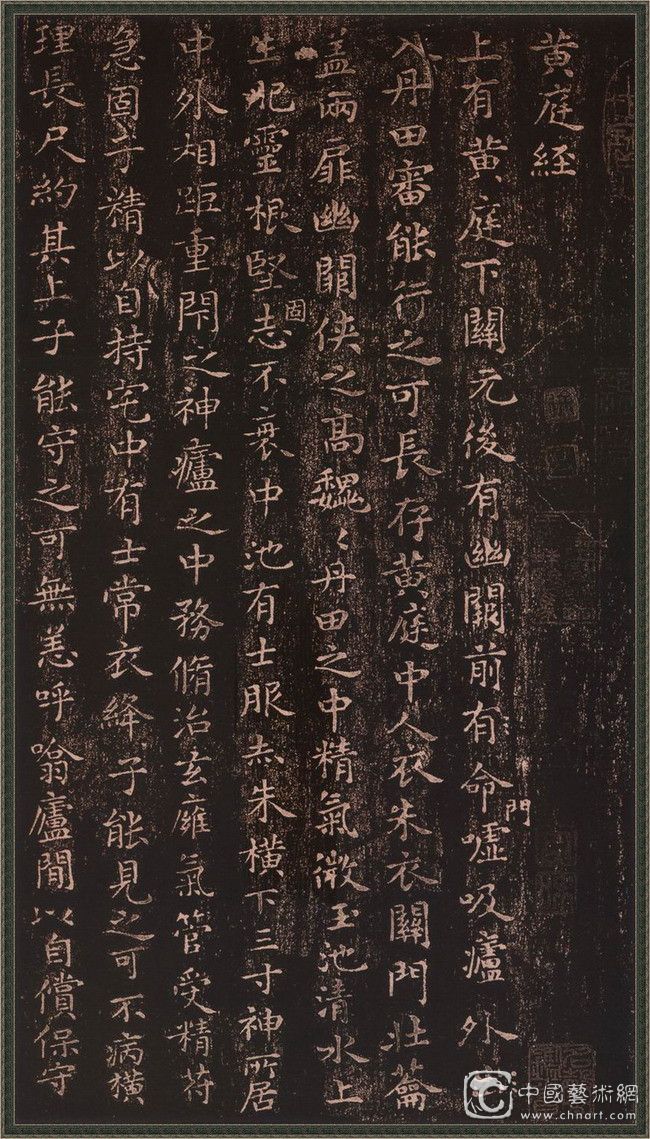 黄庭經
上有黄庭下關元後有幽闕前有命門噓吸廬外
入丹田審能行之可長存黄庭中人衣朱衣關門壯蘥
盖兩扉幽闕俠之高魏〻丹田之中精氣微玉池清水上
生肥靈根堅固志不衰中池有士服赤朱横下三寸神所居
中外相距重閇之神廬之中務脩治玄廱氣管受精苻
急固子精以自持宅中有士常衣絳子能見之可不病横
理長尺約其上子能守之可無恙呼噏廬閒以自償保守
中國藝術網
www.chnart.com